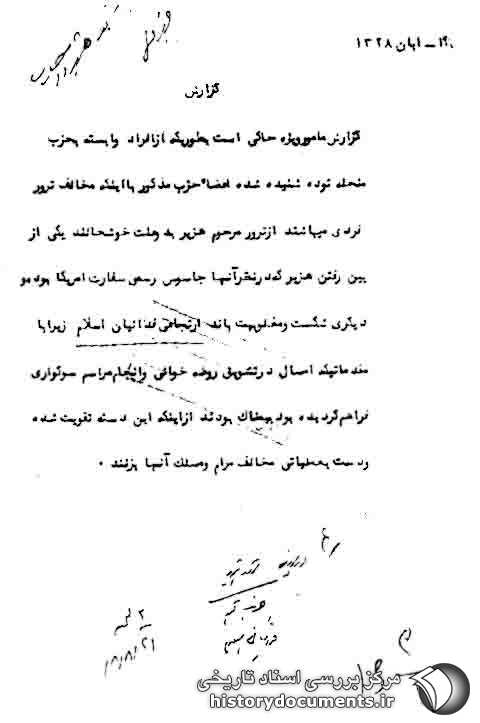 آبان ۱۳۲۸
گزارش
گزارش مامور ویژه حاکی است بطوریکه از افراد وابسته بحزب
منحله توده شنیده شده اعضاء حزب مذکور با اینکه مخالف ترور
فردی میباشند از ترور مرحوم هژیر به دو علت خوشحالند یکی از
بین رفتن هژیر که در نظر آنها جاسوس رسمی سفارت امریکا بود و
دیگری شکست و مغلوبیت باند ارتجاعی فدائیان اسلام زیرا با
مقدماتیکه امسال در تشویق روضه خوانی و انجام مراسم سوگواری
فراهم گردیده بود بیمناک بودند از اینکه این دسته تقویت شده
و دست بعملیاتی مخالف مرام و مسلک آنها بزنند .
مرکز بررسی اسناد تاریخی
historydocuments.ir